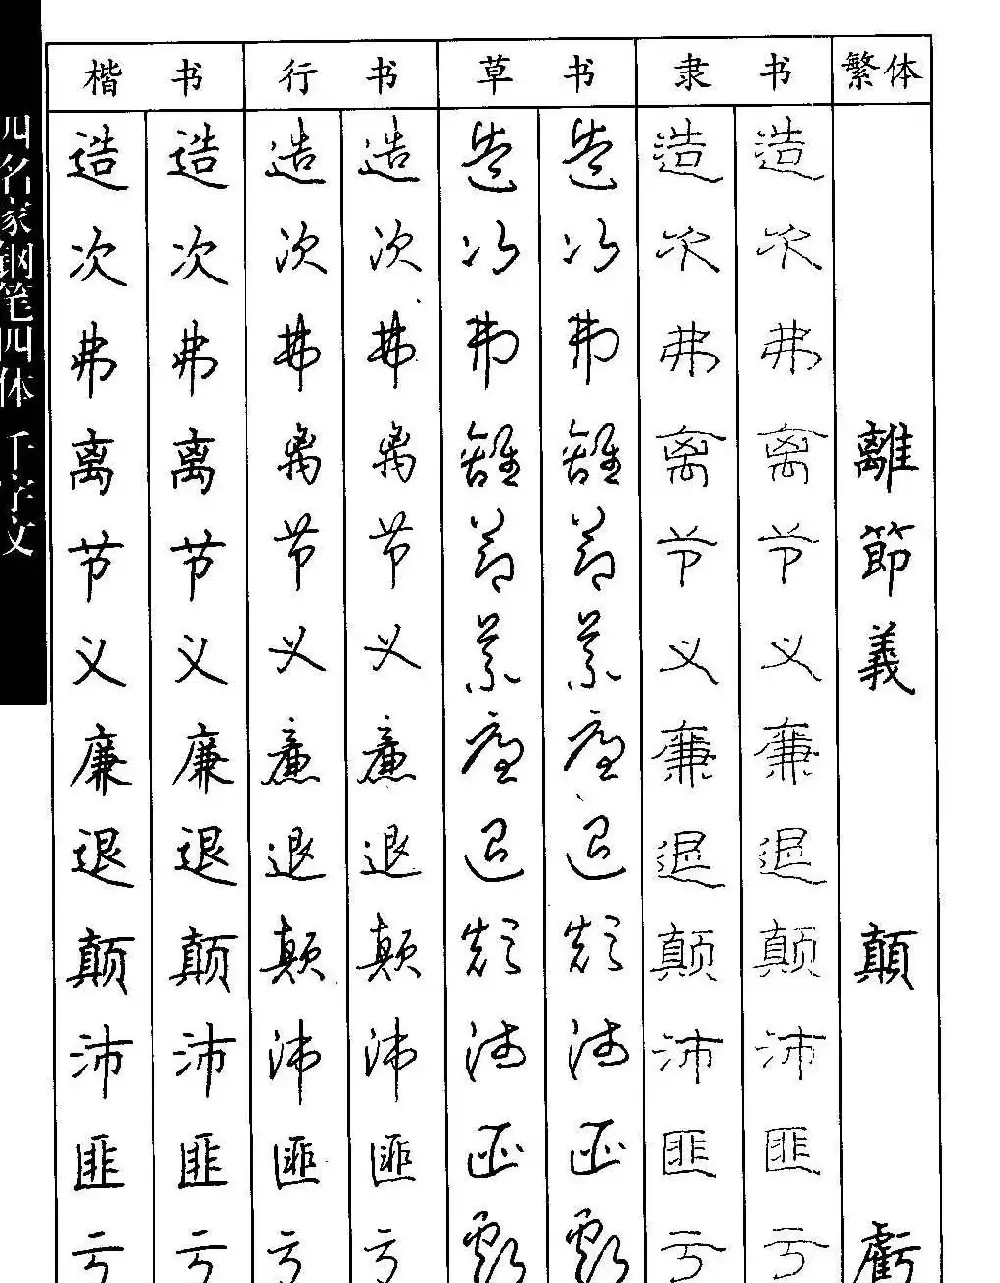 四名家钢笔四体 千字文
楷书 行书 草书 隶书 繁体
造 造 造 造 造 造 造 造
次 次 次 次 次 次 次 次
弗 弗 弗 弗 弗 弗 弗 弗
离 离 离 离 離 離 离 离 離
节 节 节 节 節 節 节 节 節
义 义 义 义 義 義 义 义 義
廉 廉 廉 廉 廉 廉 廉 廉
退 退 退 退 退 退 退 退
颠 颠 颠 颠 顛 顛 颠 颠 顛
沛 沛 沛 沛 沛 沛 沛 沛
匪 匪 匪 匪 匪 匪 匪 匪
亏 亏 亏 亏 虧 虧 亏 亏 虧